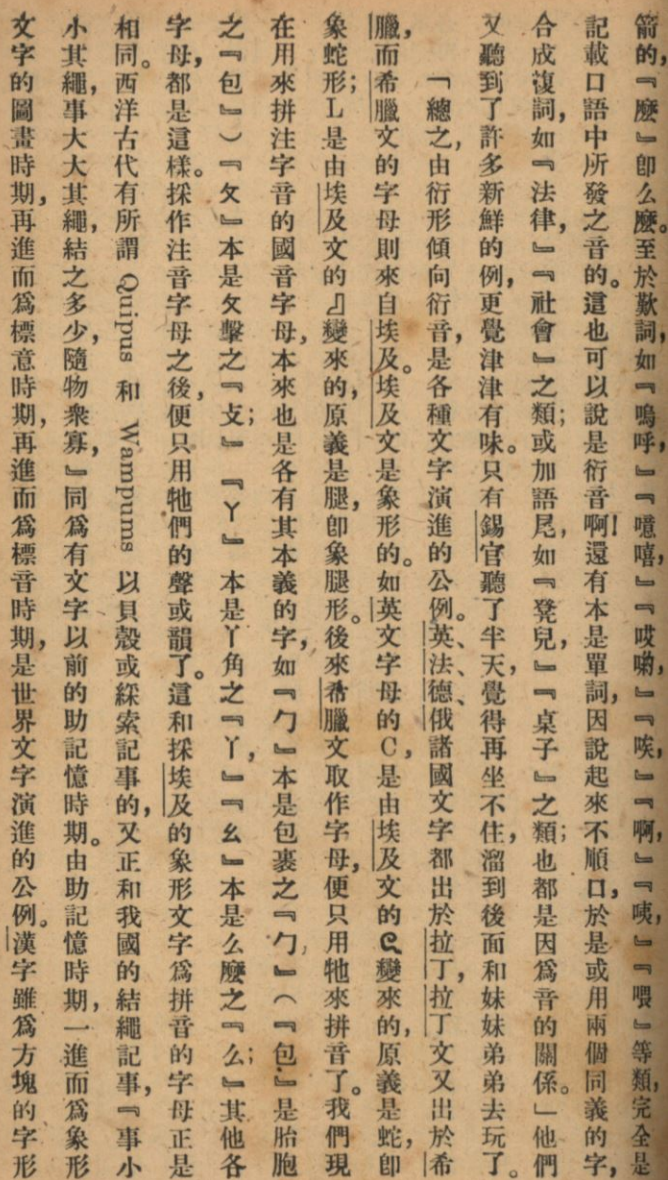 箭的，『麼』卽么麼。至於歎詞，如『嗚呼，』『噫嘻，』『哎喲，』『唉，』『啊，』『咦，』『喂』等類，完全是
記載口語中所發之音的。這也可以說是衍音啊！還有本是單詞，因說起來不順口，於是或用兩個同義的字，
合成複詞，如『法律，』『社會』之類；或加語尾，如『凳兒，』『桌子』之類；也都是因爲音的關係。」他們
又聽到了許多新鮮的例，更覺津津有味。只有錫官聽了半天，覺得再坐不住，溜到後面和妹妹弟弟去玩了。
「總之，由衍形傾向衍音，是各種文字演進的公例。英、法、德、俄諸國文字都出於拉丁，拉丁文又出於希
臘，而希臘文的字母則來自埃及。埃及文是象形的。如英文字母的C，是由埃及文的變來的，原義是蛇，卽
象蛇形；L是由埃及文的變來的，原義是腿，卽象腿形。後來希臘文取作字母，便只用牠來拼音了。我們現
在用來拼注字音的國音字母，本來也是各有其本義的字，如『ㄅ』本是包裹之『勹』（『包』是胎胞
之『包』）『ㄆ』本是攵擊之『攴；』『ㄚ』本是丫角之『丫，』『ㄠ』本是么麼之『么；』其他各
字母，都是這樣。採作注音字母之後，便只用牠們的聲或韻了。這和採埃及的象形文字爲拼音的字母正是
相同。西洋古代有所謂 Quipus 和 Wampums 以貝殼或綵索記事的，又正和我國的結繩記事，『事小
小其繩，事大大其繩，結之多少，隨物衆寡，』同爲有文字以前的助記憶時期。由助記憶時期，一進而爲象形
文字的圖畫時期，再進而爲標意時期，再進而爲標音時期，是世界文字演進的公例。漢字雖爲方塊的字形